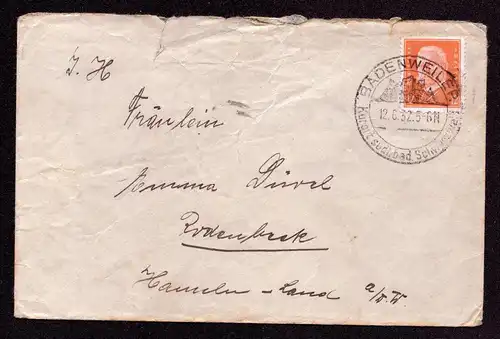 BADENWEILER
12.6.32.5-6N
Kurort südl. bad. Schwarzwald
I. H
Fräulein
Emma Düvel
Rodenbeck
Hameln-Land a/d. W